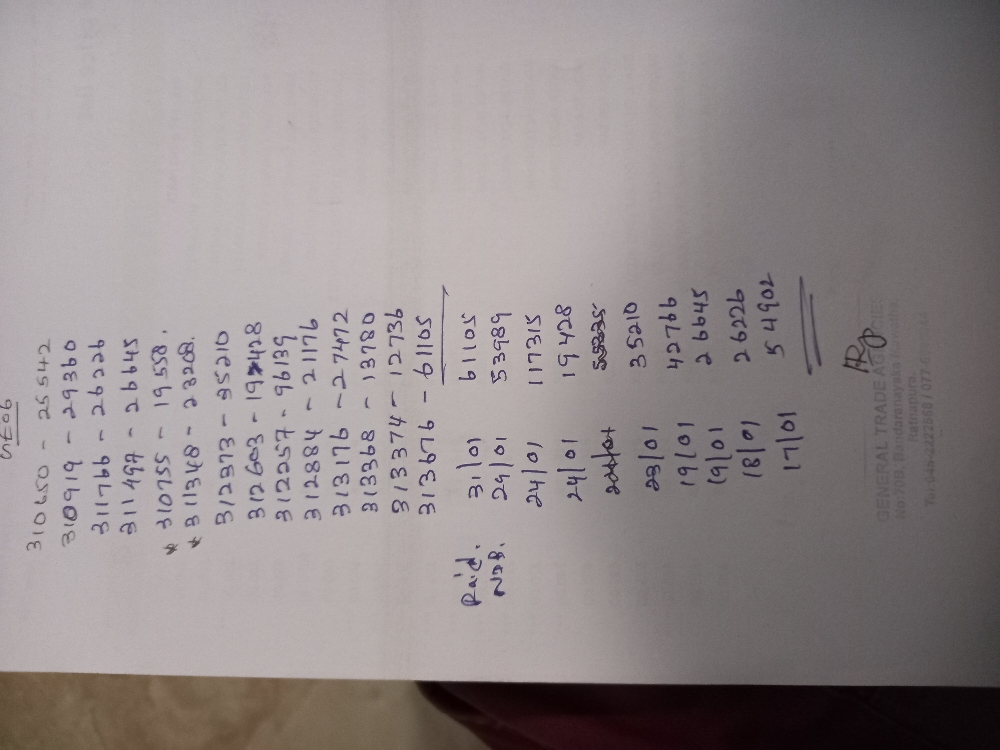 SE06
310650 - 25542
310919 - 29360
311766 - 26226
311497 - 26645
* 310755 - 19558.
* 311348 - 23208.
312373 - 35210
312603 - 19428
312257 - 96139
312884 - 21176
313176 - 27472
313368 - 13780
313374 - 12736
313676 - 61105
Paid. 31/01 61105
NDB. 29/01 53989
24/01 117315
24/01 19428
23/01 35210
19/01 42766
19/01 26645
18/01 26226
17/01 54902
GENERAL TRADE AGENCIES
No:700, Bandaranayaka Mawatha,
Ratnapura.